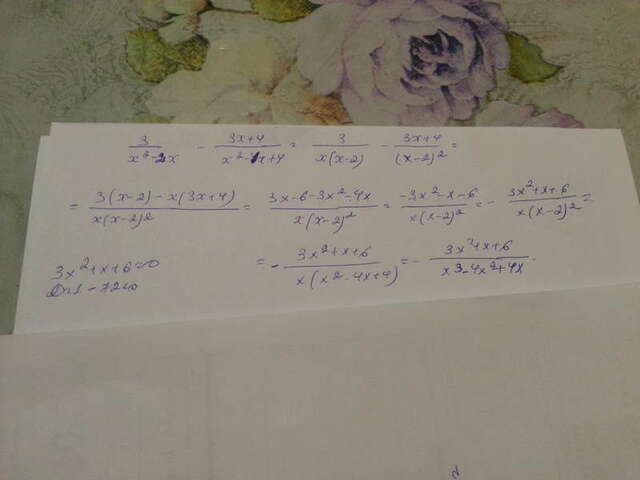 3/(x²-2x) - (3x+4)/(x²-4x+4) = 3/(x(x-2)) - (3x+4)/(x-2)² =
= (3(x-2) - x(3x+4))/(x(x-2)²) = (3x-6-3x²-4x)/(x(x-2)²) = (-3x²-x-6)/(x(x-2)²) = - (3x²+x+6)/(x(x-2)²) =
= - (3x²+x+6)/(x(x²-4x+4)) = - (3x²+x+6)/(x³-4x²+4x).
3x²+x+6=0
D=1-72<0